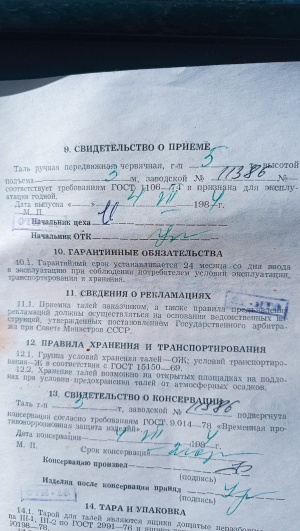 9. СВИДЕТЕЛЬСТВО О ПРИЕМЕ
Таль ручная передвижная червячная, г-п 5 т, высотой
подъема 3 м, заводской № 11386
соответствует требованиям ГОСТ 1106—74 и признана для эксплу-
атации годной.
Дата выпуска « 4 VII 1984
М. П.
Начальник цеха
Начальник ОТК
10. ГАРАНТИЙНЫЕ ОБЯЗАТЕЛЬСТВА
10.1. Гарантийный срок устанавливается 24 месяца со дня ввода
в эксплуатацию при соблюдении потребителем условий эксплуатации,
транспортирования и хранения.
11. СВЕДЕНИЯ О РЕКЛАМАЦИЯХ
11.1. Приемка талей заказчиком, а также правила предъявления
рекламаций должны осуществляться на основании ведомственных ин-
струкций, утвержденных постановлением Государственного арбитра-
жа при Совете Министров СССР.
12. ПРАВИЛА ХРАНЕНИЯ И ТРАНСПОРТИРОВАНИЯ
12.1. Группа условий хранения талей—ОЖ; условий транспортиро-
вания—Ж в соответствии с ГОСТ 15150—69.
12.2. Хранение талей возможно на открытых площадках на поддо-
нах при условии предохранения талей от атмосферных осадков.
13. СВИДЕТЕЛЬСТВО О КОНСЕРВАЦИИ
Таль г-п 5 т, заводской № 11386 подвергнута
консервации согласно требованиям ГОСТ 9.014—78 «Временная про-
тивокоррозионная защита изделий».
Дата консервации 4 VII
М. П. Срок консервации
Консервацию произвел
(подпись)
Изделия после консервации принял
(подпись)
14. ТАРА И УПАКОВКА
14.1. Тарой для талей являются ящики дощатые неразборные
ГОСТ 2991—76